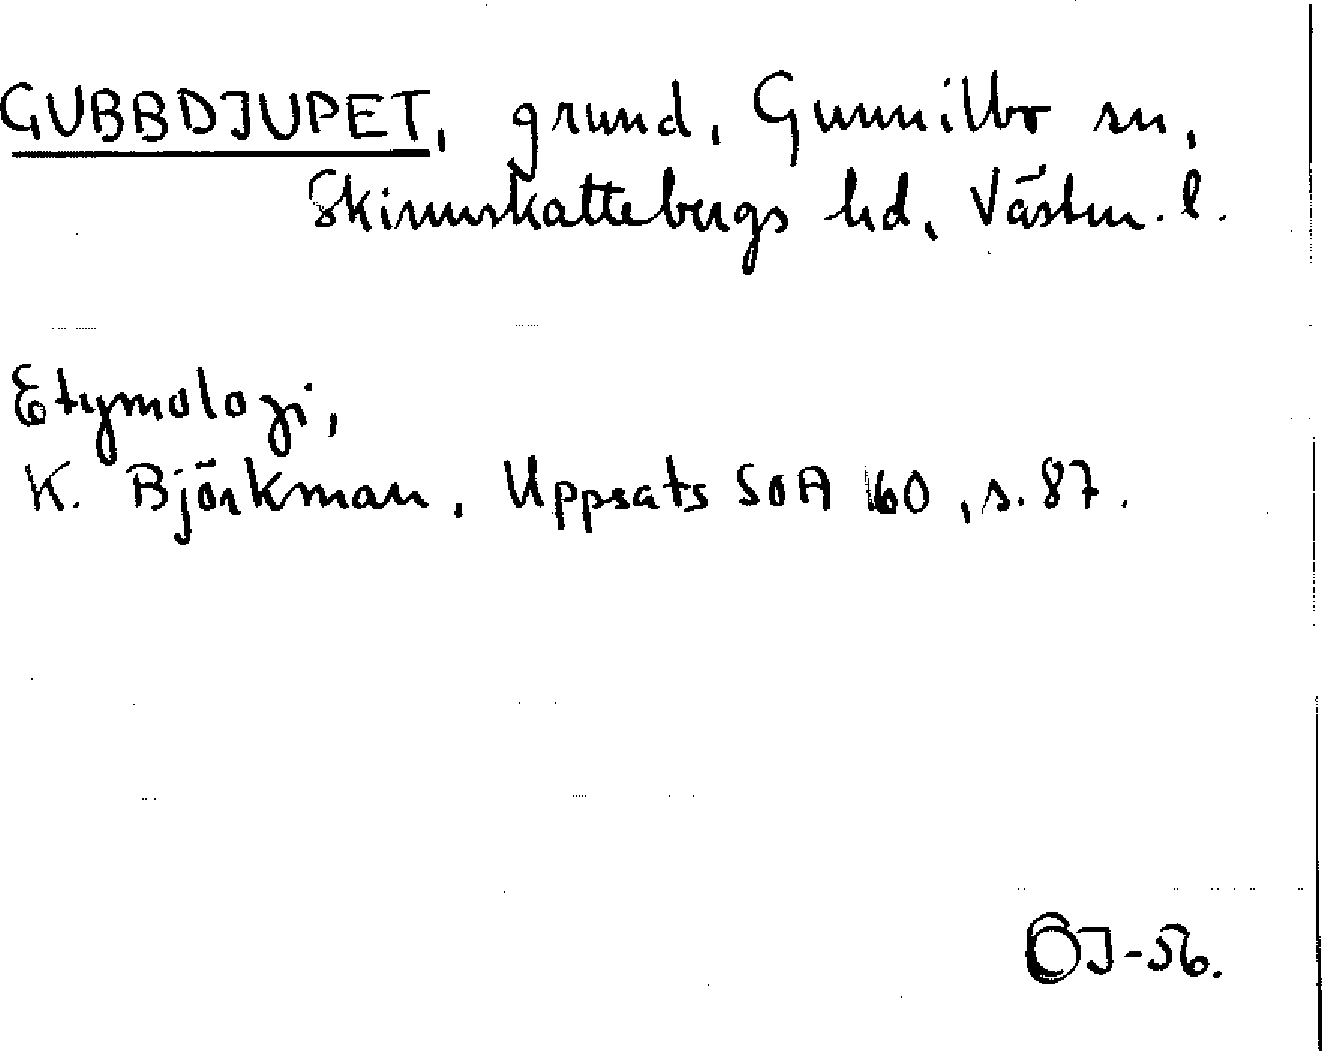 GUBBDJUPET, grund, Gunnilbo sn,
Skinnskattebergs hd, Västm. l.
Etymologi,
K. Björkman, Uppsats SOA 160, s. 87.
ÖJ-56.